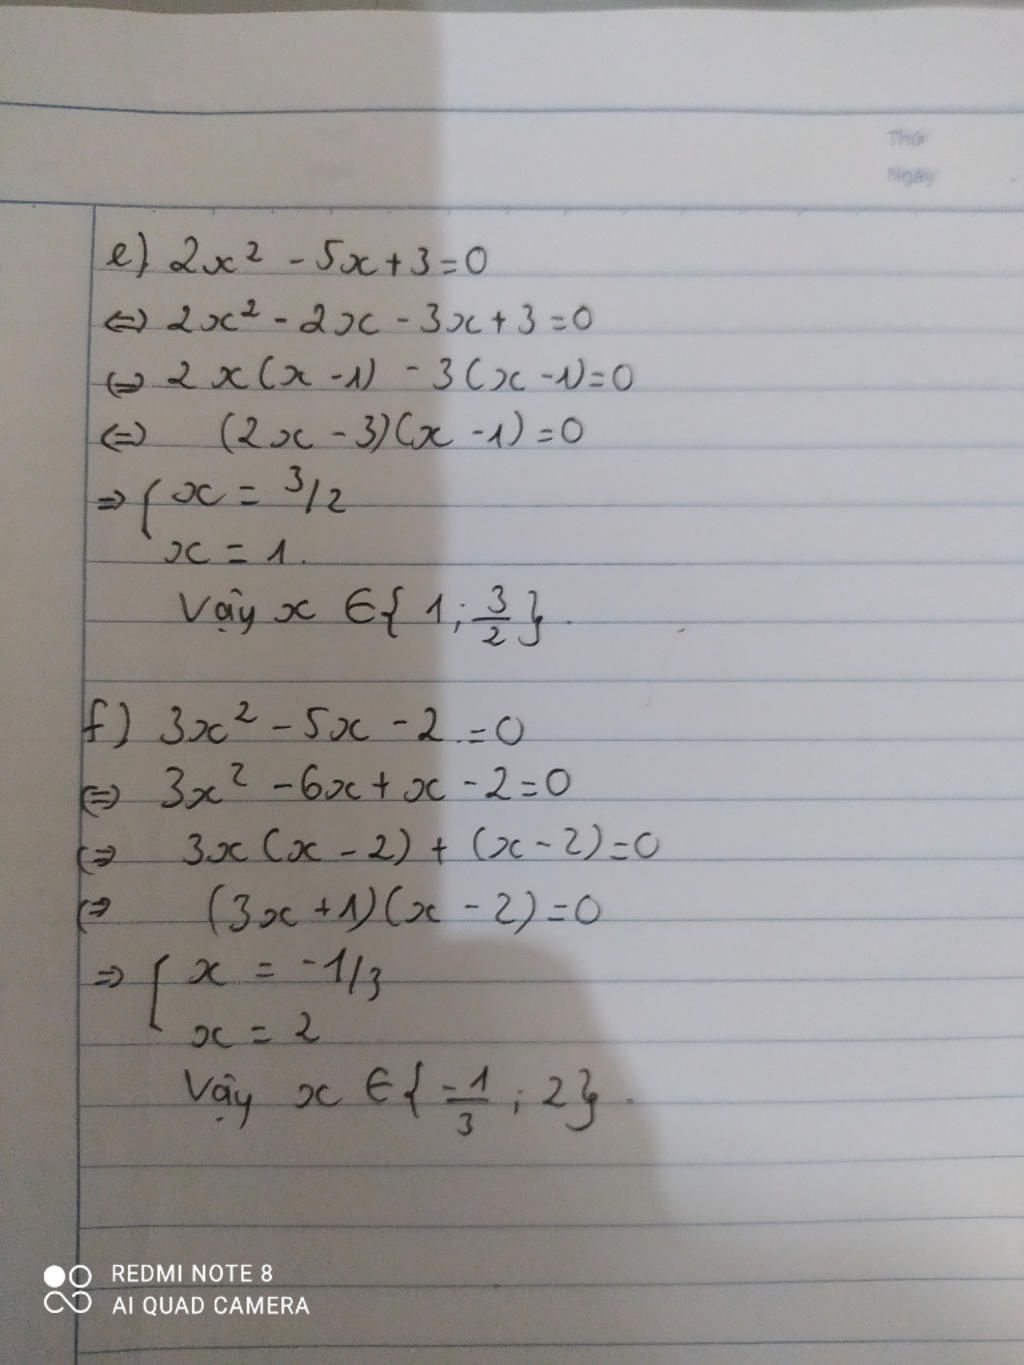 Thứ
Ngày
e) 2x² - 5x + 3 = 0
⇔ 2x² - 2x - 3x + 3 = 0
⇔ 2x(x - 1) - 3(x - 1) = 0
⇔ (2x - 3)(x - 1) = 0
⇒ { x = 3/2
x = 1.
Vậy x ∈ { 1 ; 3/2 }.
f) 3x² - 5x - 2 = 0
⇔ 3x² - 6x + x - 2 = 0
⇔ 3x(x - 2) + (x - 2) = 0
⇔ (3x + 1)(x - 2) = 0
⇒ [ x = -1/3
x = 2
Vậy x ∈ { -1/3 ; 2 }.
REDMI NOTE 8
AI QUAD CAMERA